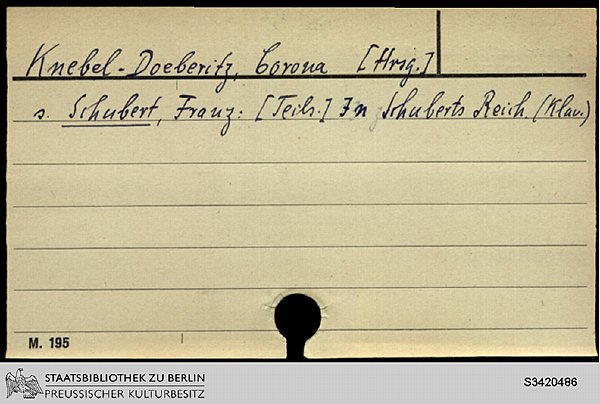 Knebel-Doeberitz, Corona [Hrsg.]
s. Schubert, Franz: [Teils.] In Schuberts Reich. (Klav.)
M. 195
STAATSBIBLIOTHEK ZU BERLIN
PREUSSISCHER KULTURBESITZ
S3420486